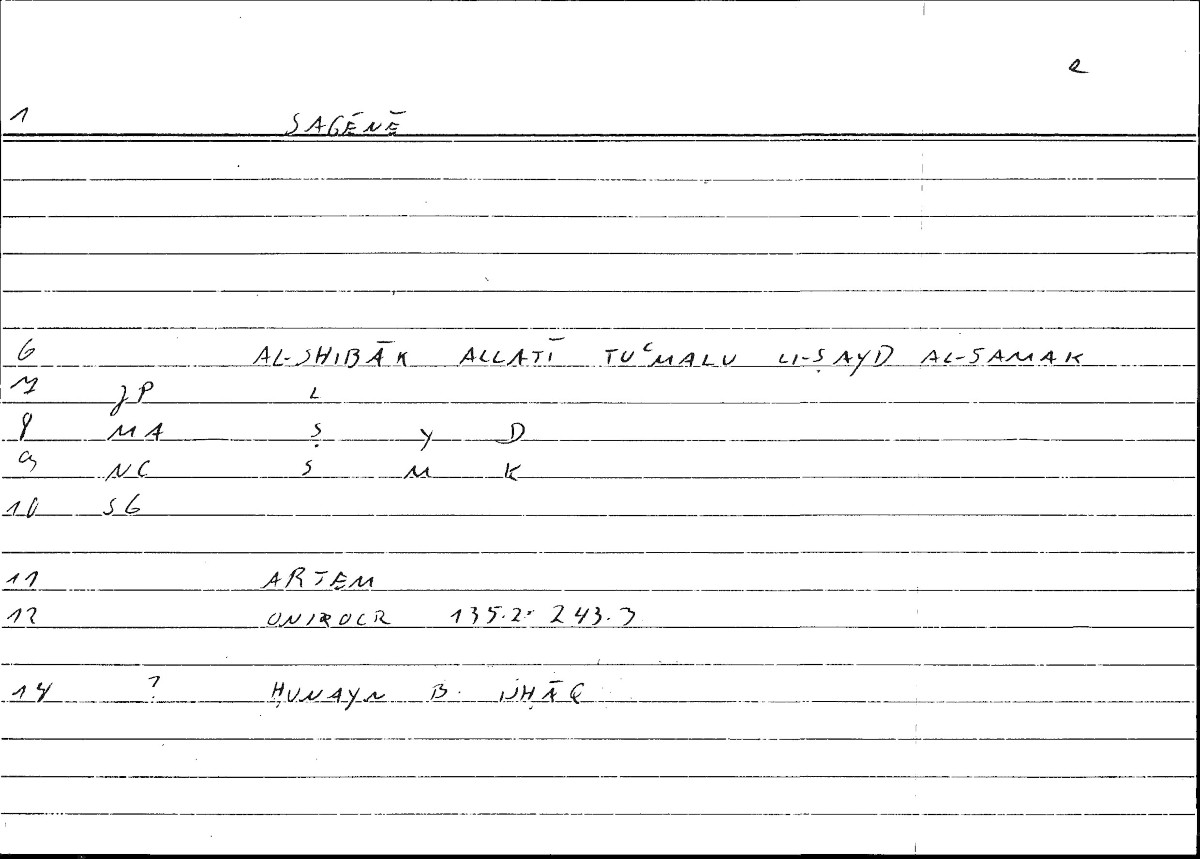 e
1 SAGĒNĒ
6 AL-SHIBĀK ALLATĪ TUʿMALU LI-ṢAYD AL-SAMAK
7 JP L
8 MA Ṣ Y D
9 NC S M K
10 SG
11 ARTEM
12 ONIROCR 135.2· 243.3
14 ? ḤUNAYN B. ISḤĀQ